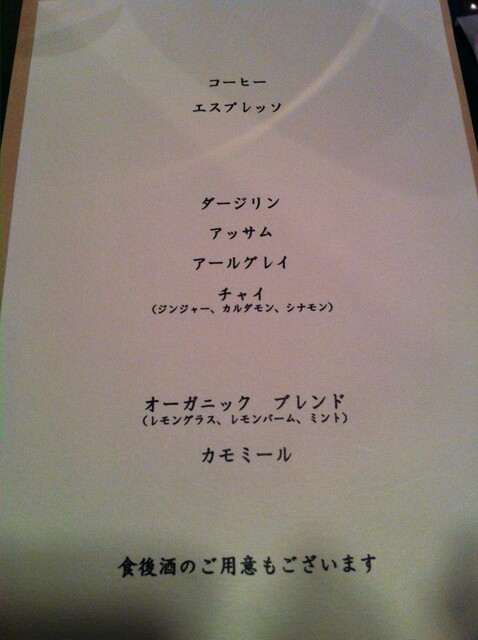 コーヒー
エスプレッソ
ダージリン
アッサム
アールグレイ
チャイ
（ジンジャー、カルダモン、シナモン）
オーガニック　ブレンド
（レモングラス、レモンバーム、ミント）
カモミール
食後酒のご用意もございます